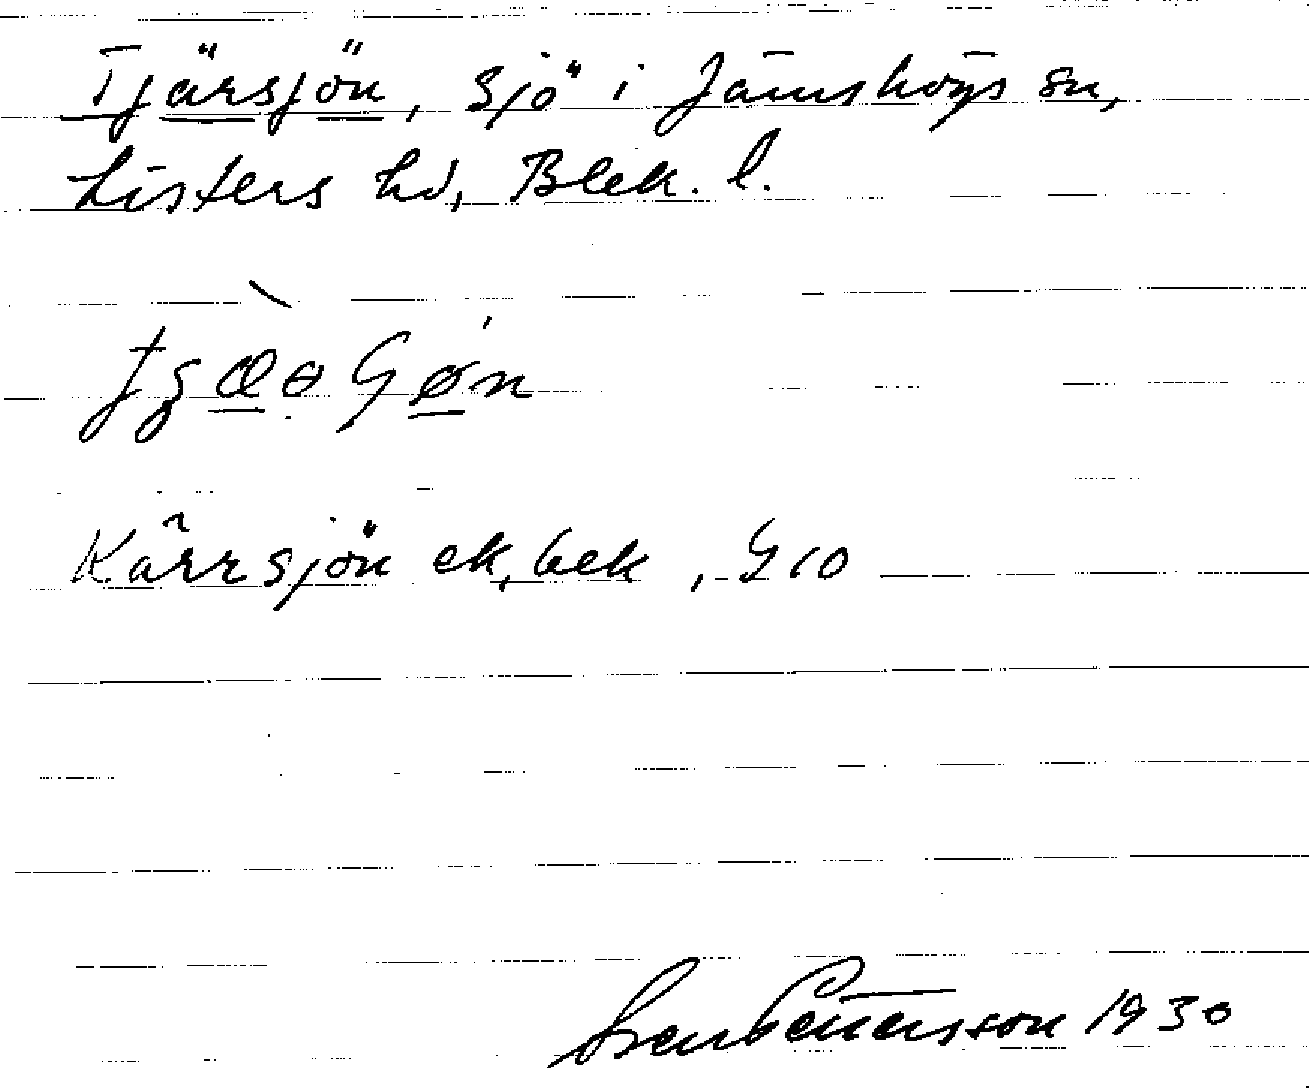 Tjärsjön, sjö i Jämshögs sn,
Listers hd, Blek. l.
Kärrsjön ek, bek, G 10
Sven Pettersson 1930